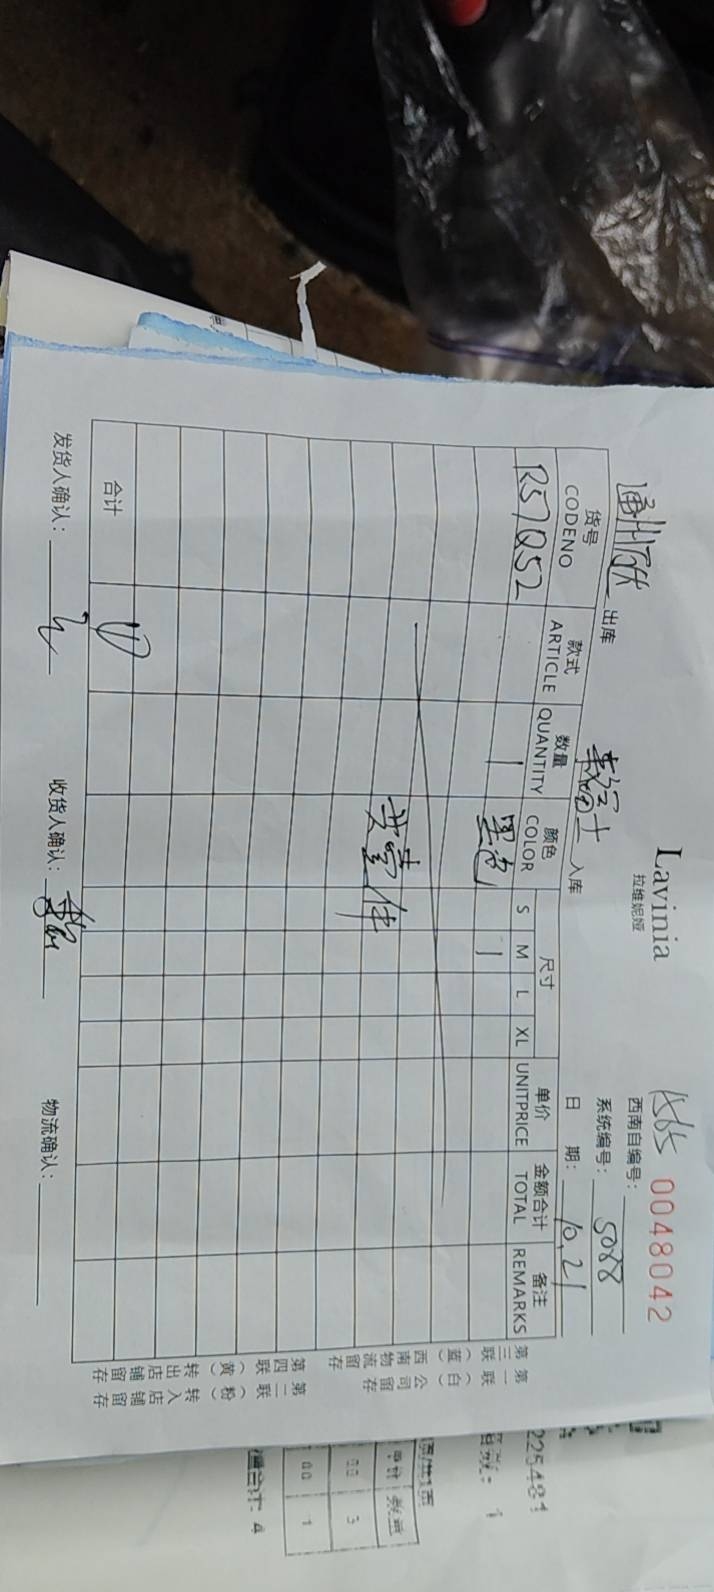 Lavinia
拉维妮娅
1585 0048042
西南自编号：
系统编号：5088
出库 入库 日 期：10.21
货号 款式 数量 颜色 尺寸 单价 金额合计 备注
CODENO ARTICLE QUANTITY COLOR S M L XL UNITPRICE TOTAL REMARKS
R57Q52 1 黑色 1
共壹件
合计 ①
发货人确认： 收货人确认： 物流确认：
第一联（白）公司留存
第二联（粉）转入店铺留存
第三联（蓝）西南物流留存
第四联（黄）转出店铺留存
225481
1
数量
00 3
00 1
4